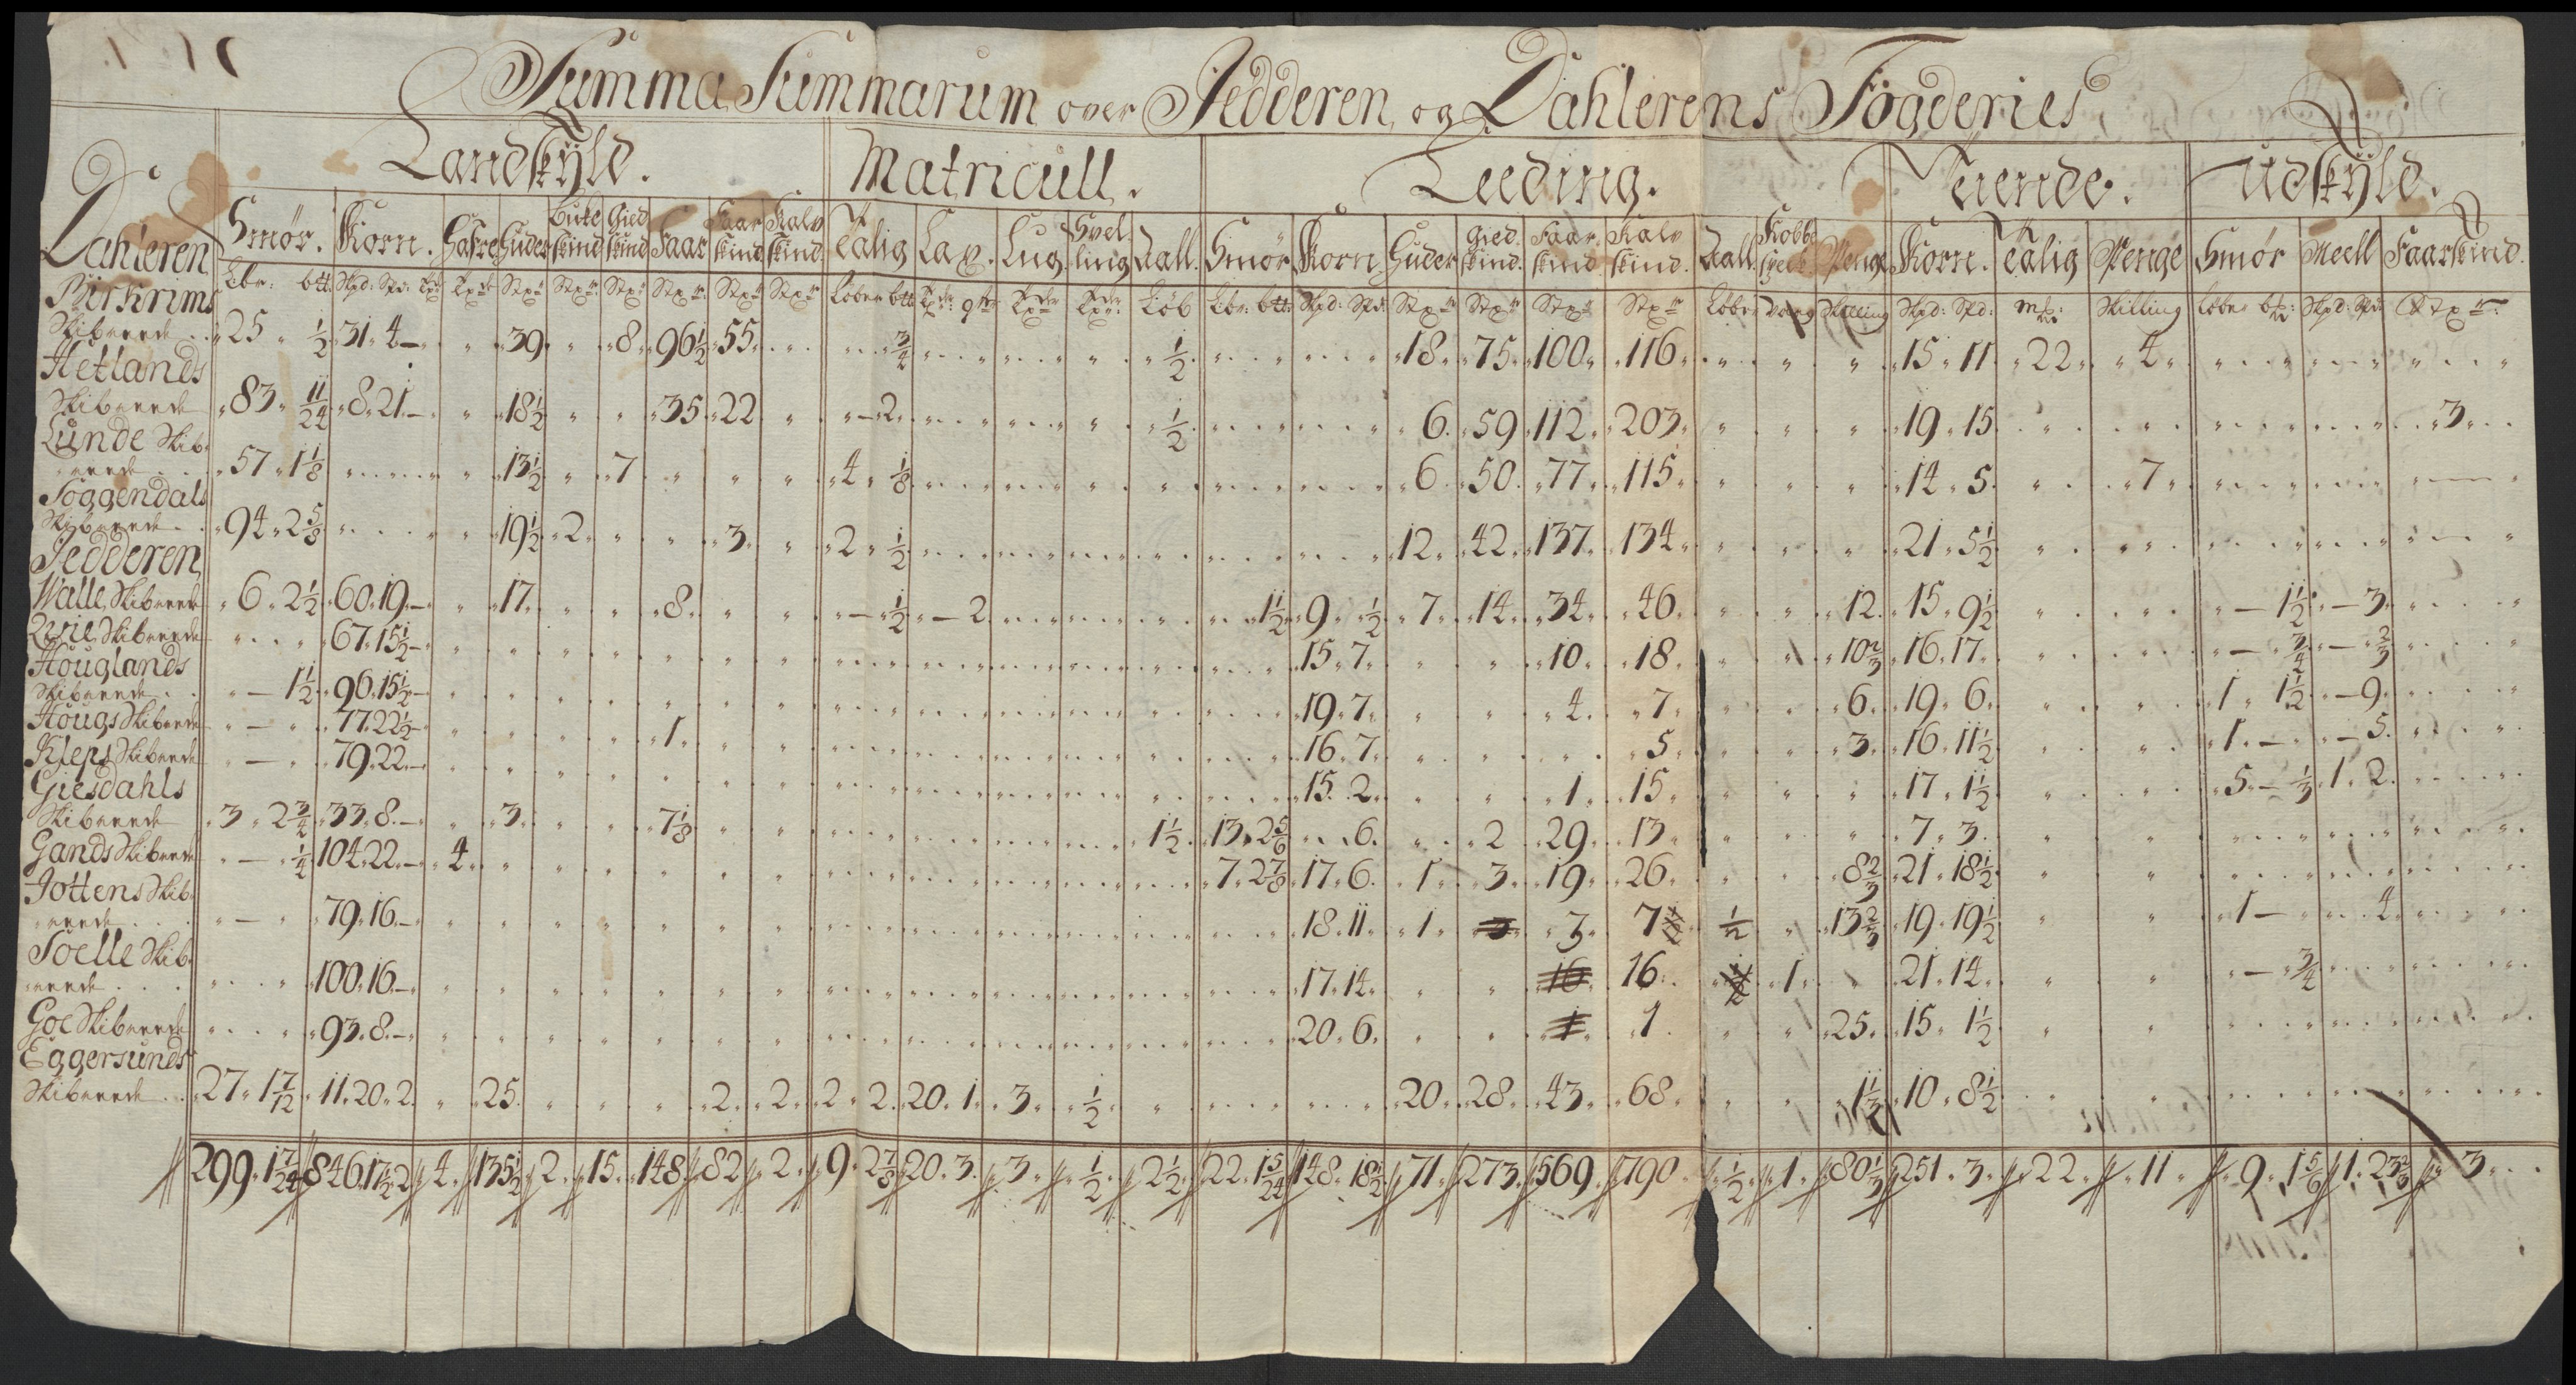 Summa Summarum over Jedderen og Dahlerens Fogderies
Landskÿld. Matricull. Leeding. Tiende. Udskÿld.
Dahleren Smør. Korn. Hafre Huder Buke skind Gied skind Faar Faar skind Kalv skind. Talig Lax. Lug. Hvel ling Zall. Smør Korn Huder Gied skind. Faar skind Kalv skind. Zall. Kobbe Penge Korn. Talig Penge Smør Meell Faarskind.
Løber btt Løb Skilling
Birkrims
Skibrede 25 1/2 31 4 — 39 8 96 1/2 55 3/4 1/2 18 75 100 116 15 11 22 4
Hetlands
Skibrede 83 11/24 8 21 — 18 1/2 35 22 — 2 1/2 6 59 112 203 19 15 3
Lunde Skib-
rede 57 1 1/8 13 1/2 7 4 1/8 6 50 77 115 14 5 7
Soggendals
Skibrede 94 2 5/8 19 1/2 2 3 2 1/2 12 42 137 134 21 5 1/2
Jedderen
Walle Skibrede 6 2 1/2 60 19 — 17 8 — 1/2 — 2 1 1/2 9 1/2 7 14 34 46 12 15 9 1/2 — 1 1/2 — 3
Qvie Skibrede 67 15 1/2 — 15 7 10 18 10 2/3 16 17 — 3/4 — 2/3
Houglands
Skibrede — 1 1/2 96 15 1/2 — 19 7 4 7 6 19 6 1 1 1/2 — 9
Hougs Skibrede — 77 22 1/2 — 1 16 7 5 3 16 11 1/2 1 — — 5
Kleps Skibrede — 79 22 — 15 2 1 15 17 1 1/2 5 — 1/3 1 2
Giesdahls
Skibrede 3 2 3/4 33 8 — 3 7 1/8 1 1/2 13 2 5/6 6 2 29 13 7 3
Gands Skibrede — 1/4 104 22 — 4 7 2 7/8 17 6 1 3 19 26 8 2/3 21 18 1/2
Jottens Skib-
rede — 79 16 — 18 11 1 3 3 7 1/2 1/2 13 2/3 19 19 1/2 1 — 4
Soelle Skib-
rede 100 16 — 17 14 16 16 1/2 1 21 14 — 3/4
Goe Skibrede 93 8 — 20 6 1 1 25 15 1 1/2
Eggersunds
Skibrede 27 1 7/12 11 20 2 25 2 2 2 2 20 1 3 1/2 20 28 43 68 1 1/3 10 8 1/2
299 1 7/24 846 17 1/2 2 4 135 1/2 2 15 148 82 2 9 2 7/8 20 3 3 1/2 2 1/2 22 1 5/24 148 18 1/2 71 273 569 790 1/2 1 80 1/3 251 3 22 11 9 1 5/6 1 23 2/3 3